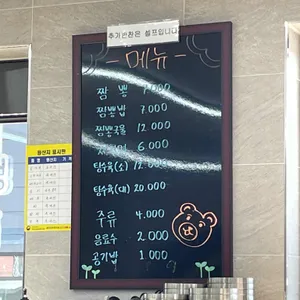 추가반찬은 셀프입니다
- 메뉴 -
짬뽕 7.000
짬뽕밥 7.000
짬뽕국물 12.000
6.000
탕수육(소) 12.000
탕수육(대) 20.000
주류 4.000
음료수 2.000
공기밥 1.000
원산지 표시판